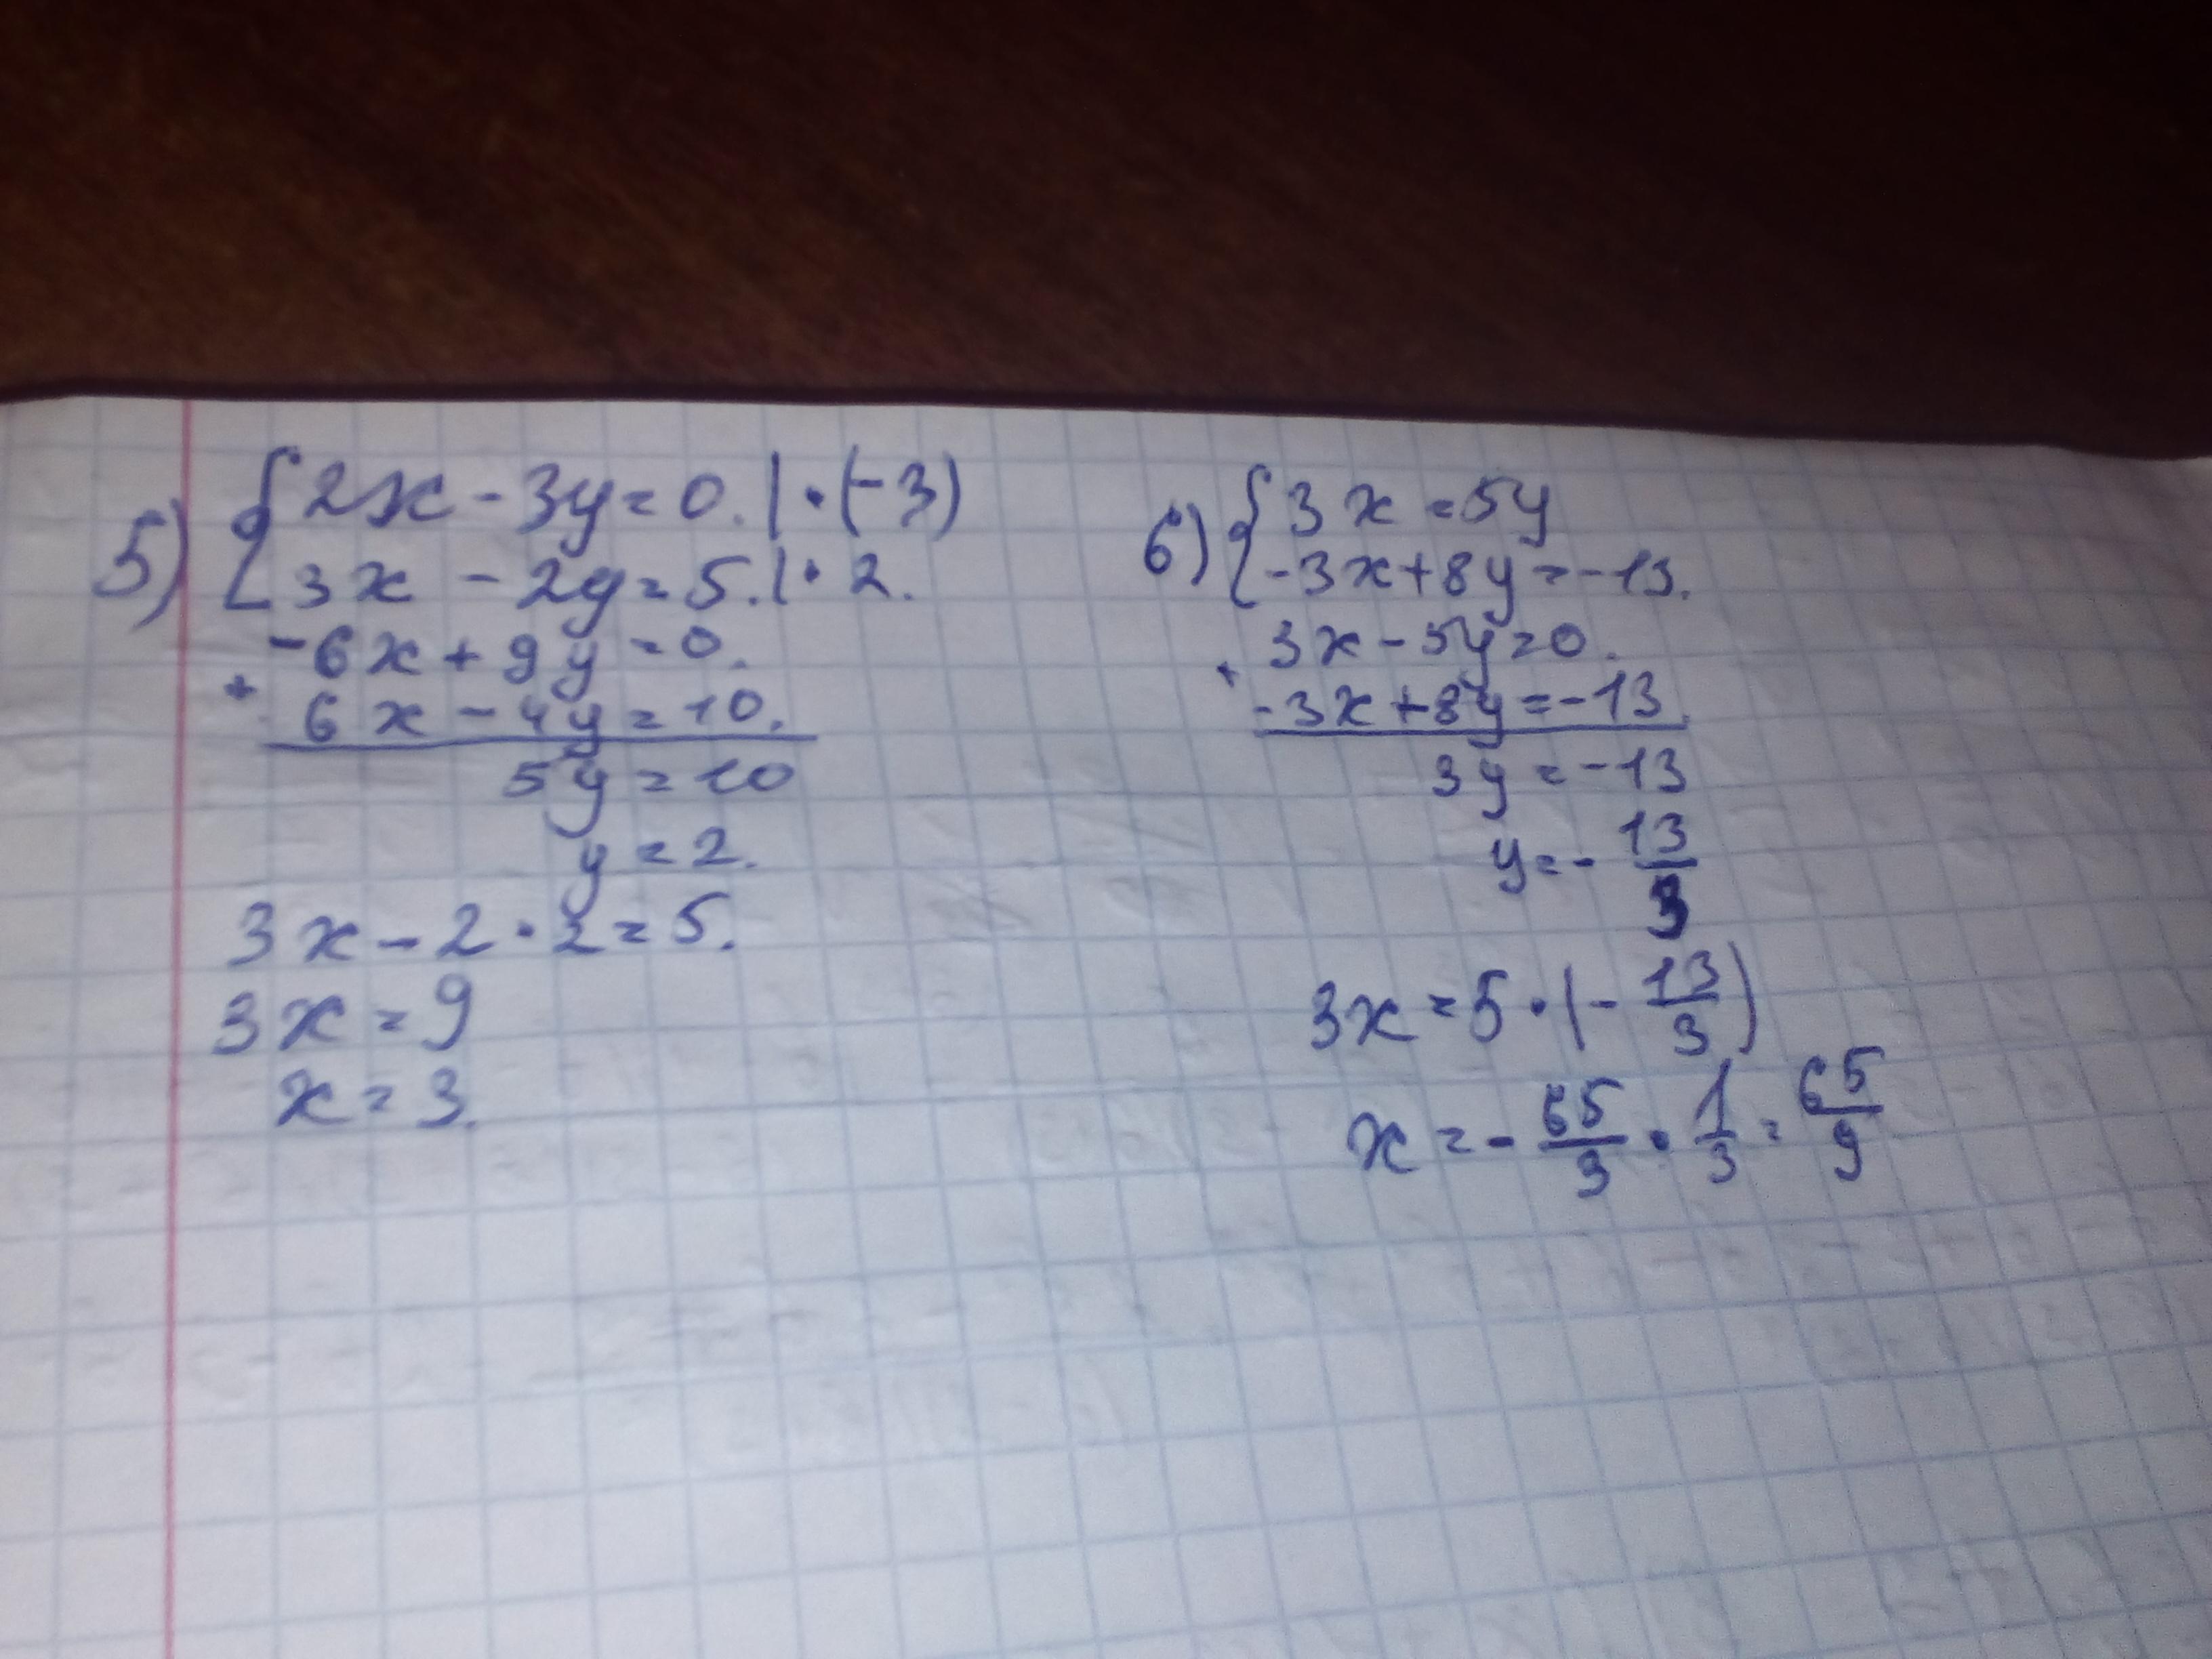 5) { 2x - 3y = 0. | · (-3)
3x - 2y = 5. | · 2.
-6x + 9y = 0.
+ 6x - 4y = 10.
5y = 10
y = 2.
3x - 2 · 2 = 5.
3x = 9
x = 3.
6) { 3x = 5y
-3x + 8y = -13.
3x - 5y = 0.
+ -3x + 8y = -13
3y = -13
y = - 13/3
3x = 5 · (- 13/3)
x = - 65/3 · 1/3 = 65/9